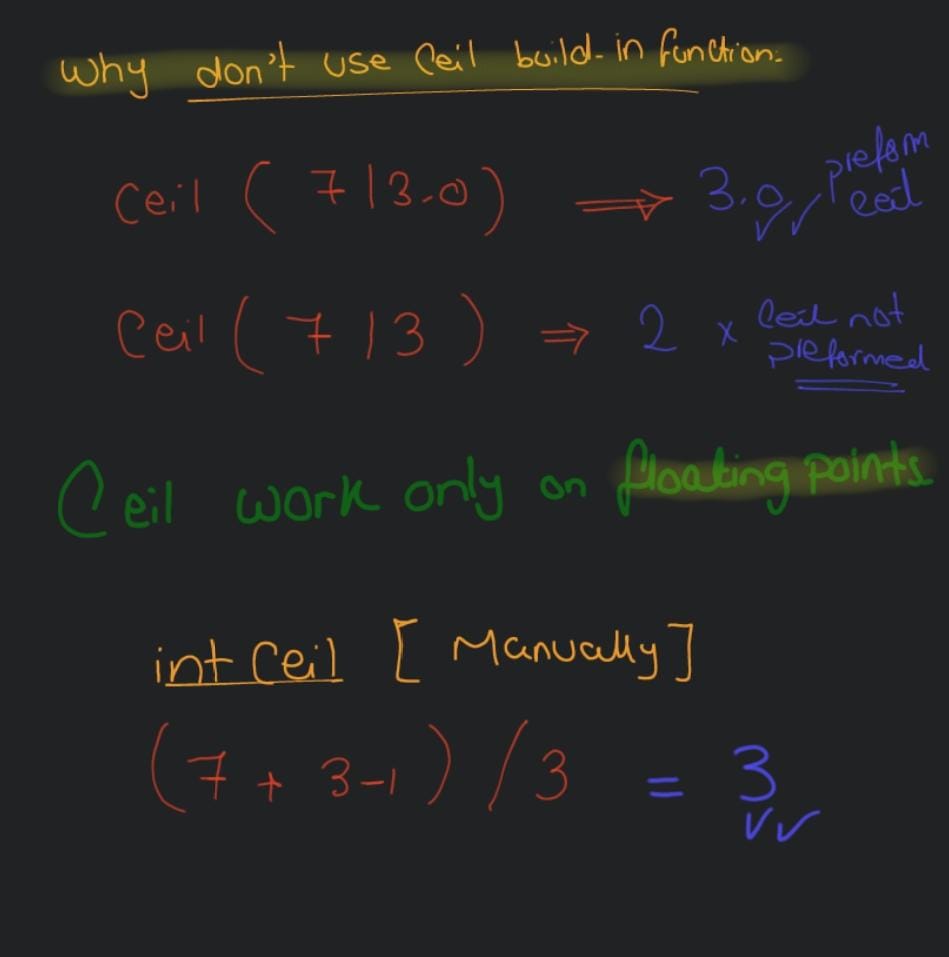 Why don't use Ceil build-in function:
Ceil ( 7 / 3.0 ) ⟹ 3.0 ✓✓ preform ceil
Ceil ( 7 / 3 ) ⇒ 2 × Ceil not preformed
Ceil work only on floating points
int Ceil [ Manually ]
(7 + 3-1) / 3 = 3 ✓✓